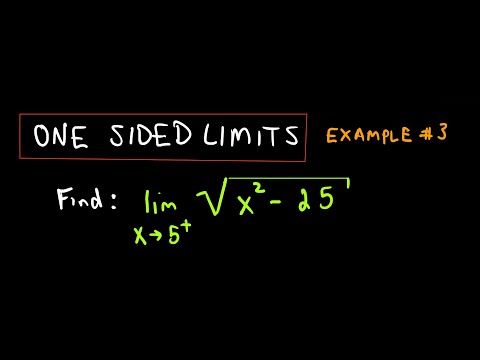 ONE SIDED LIMITS EXAMPLE #3
Find: lim √x² - 25
x→5⁺